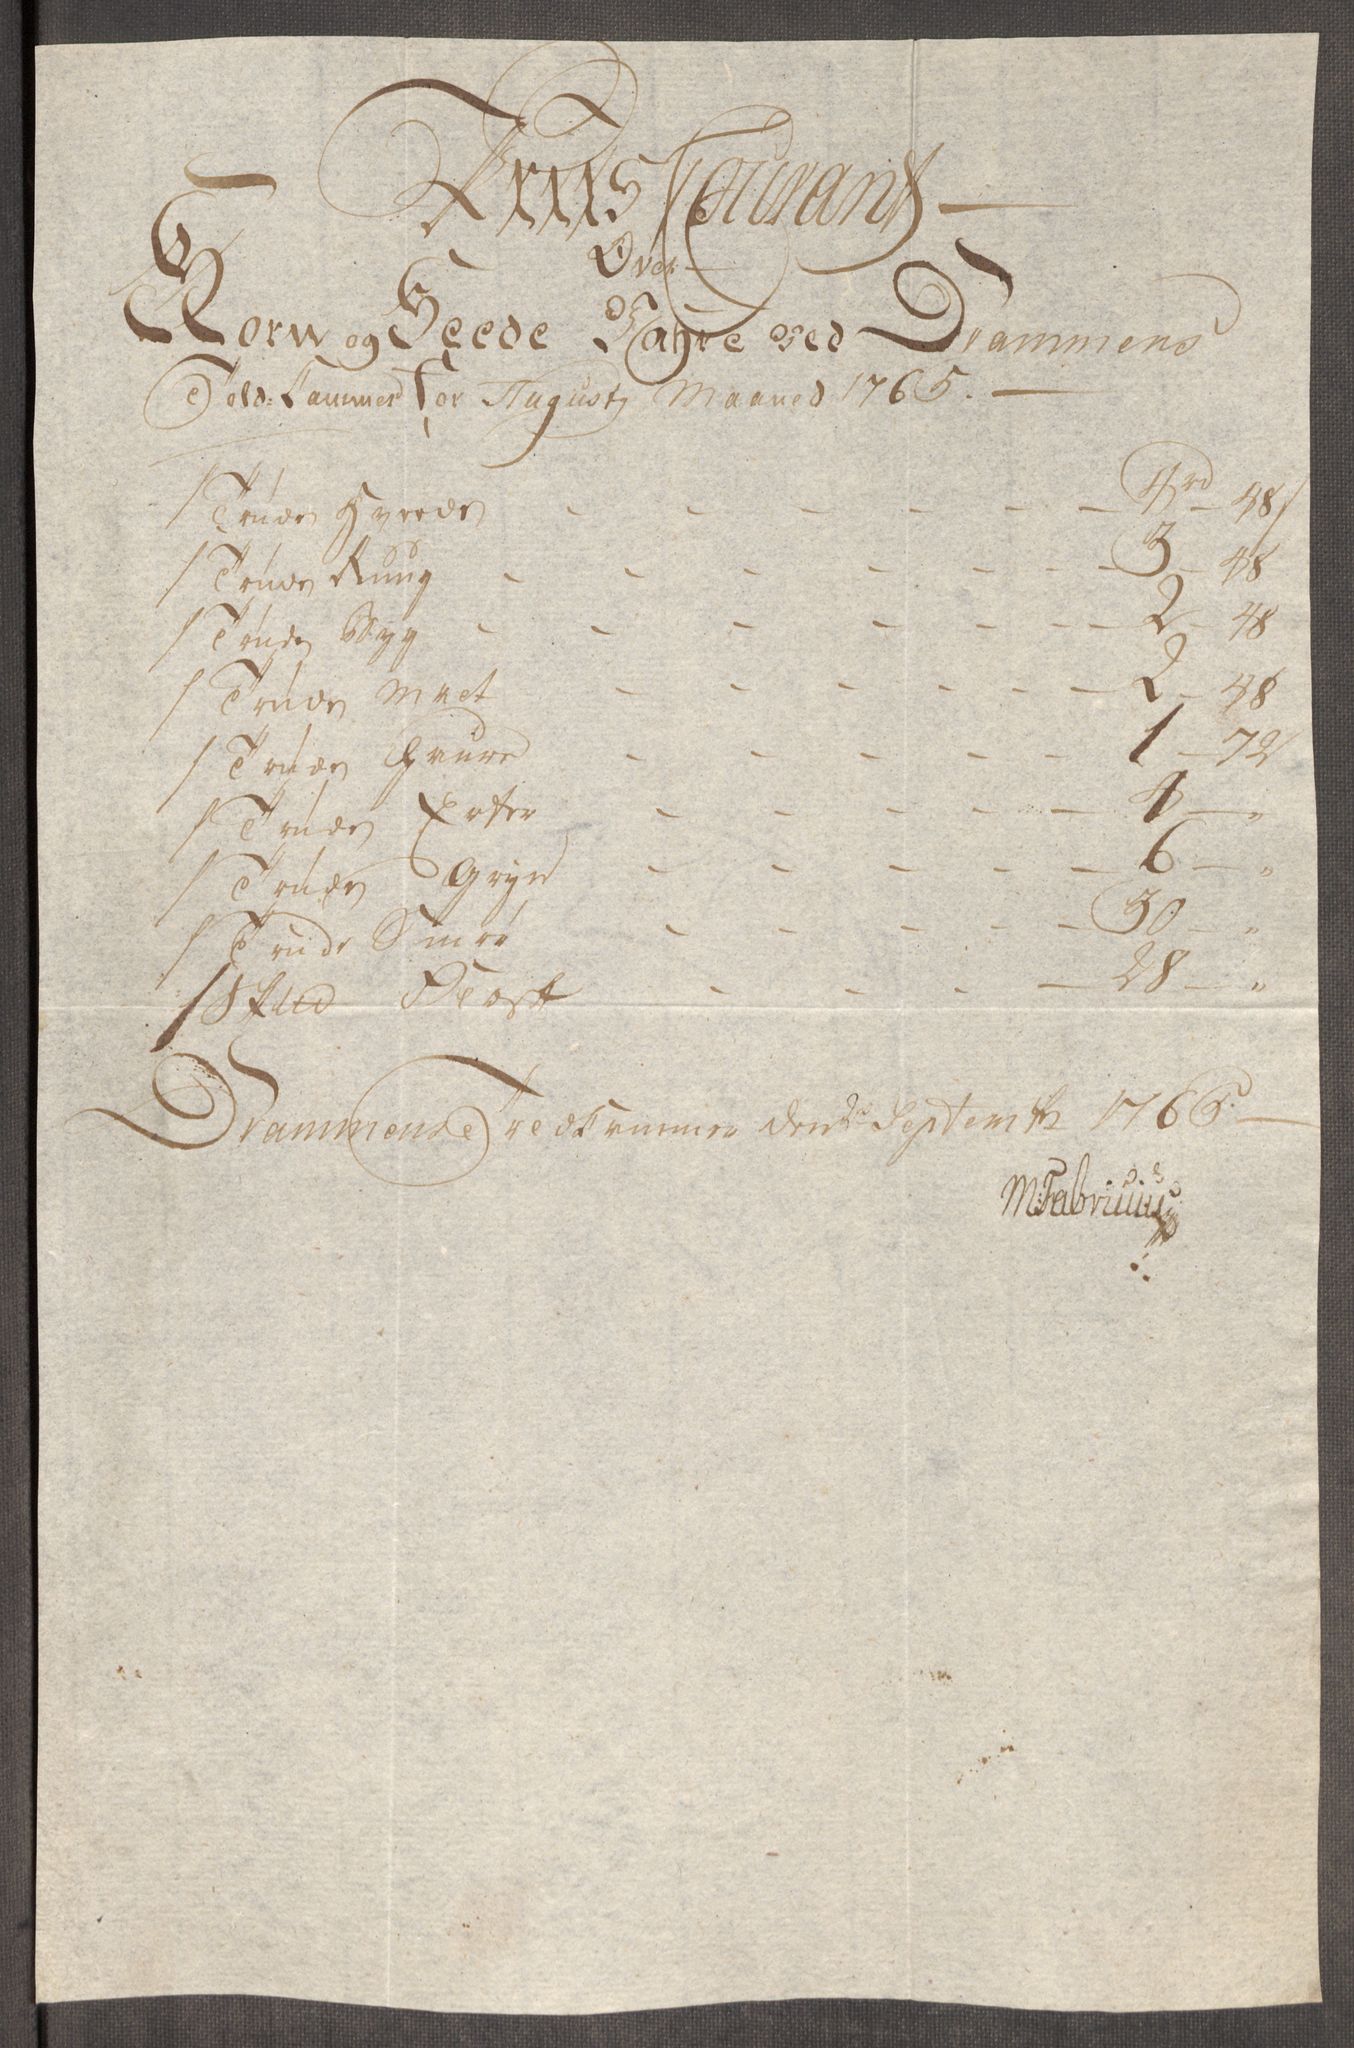 Priis Courant
Over
Korn og Feede Vahre ved Drammens
Told: Cammer for Augusti Maaned 1765.
1 Tønde Hvede 4 rd 48 s
1 Tønde Rung 3 48
1 Tønde Byg 2 48
1 Tønde Malt 2 48
1 Tønde Havre 1 72
1 Tønde Erter 4 "
1 Tønde Gryn 6 "
1 Tønde Smør 30 "
1 Skpd Oest 28 "
Drammens Toldkammer den 2 Septembr 1765.
M: Fabricius